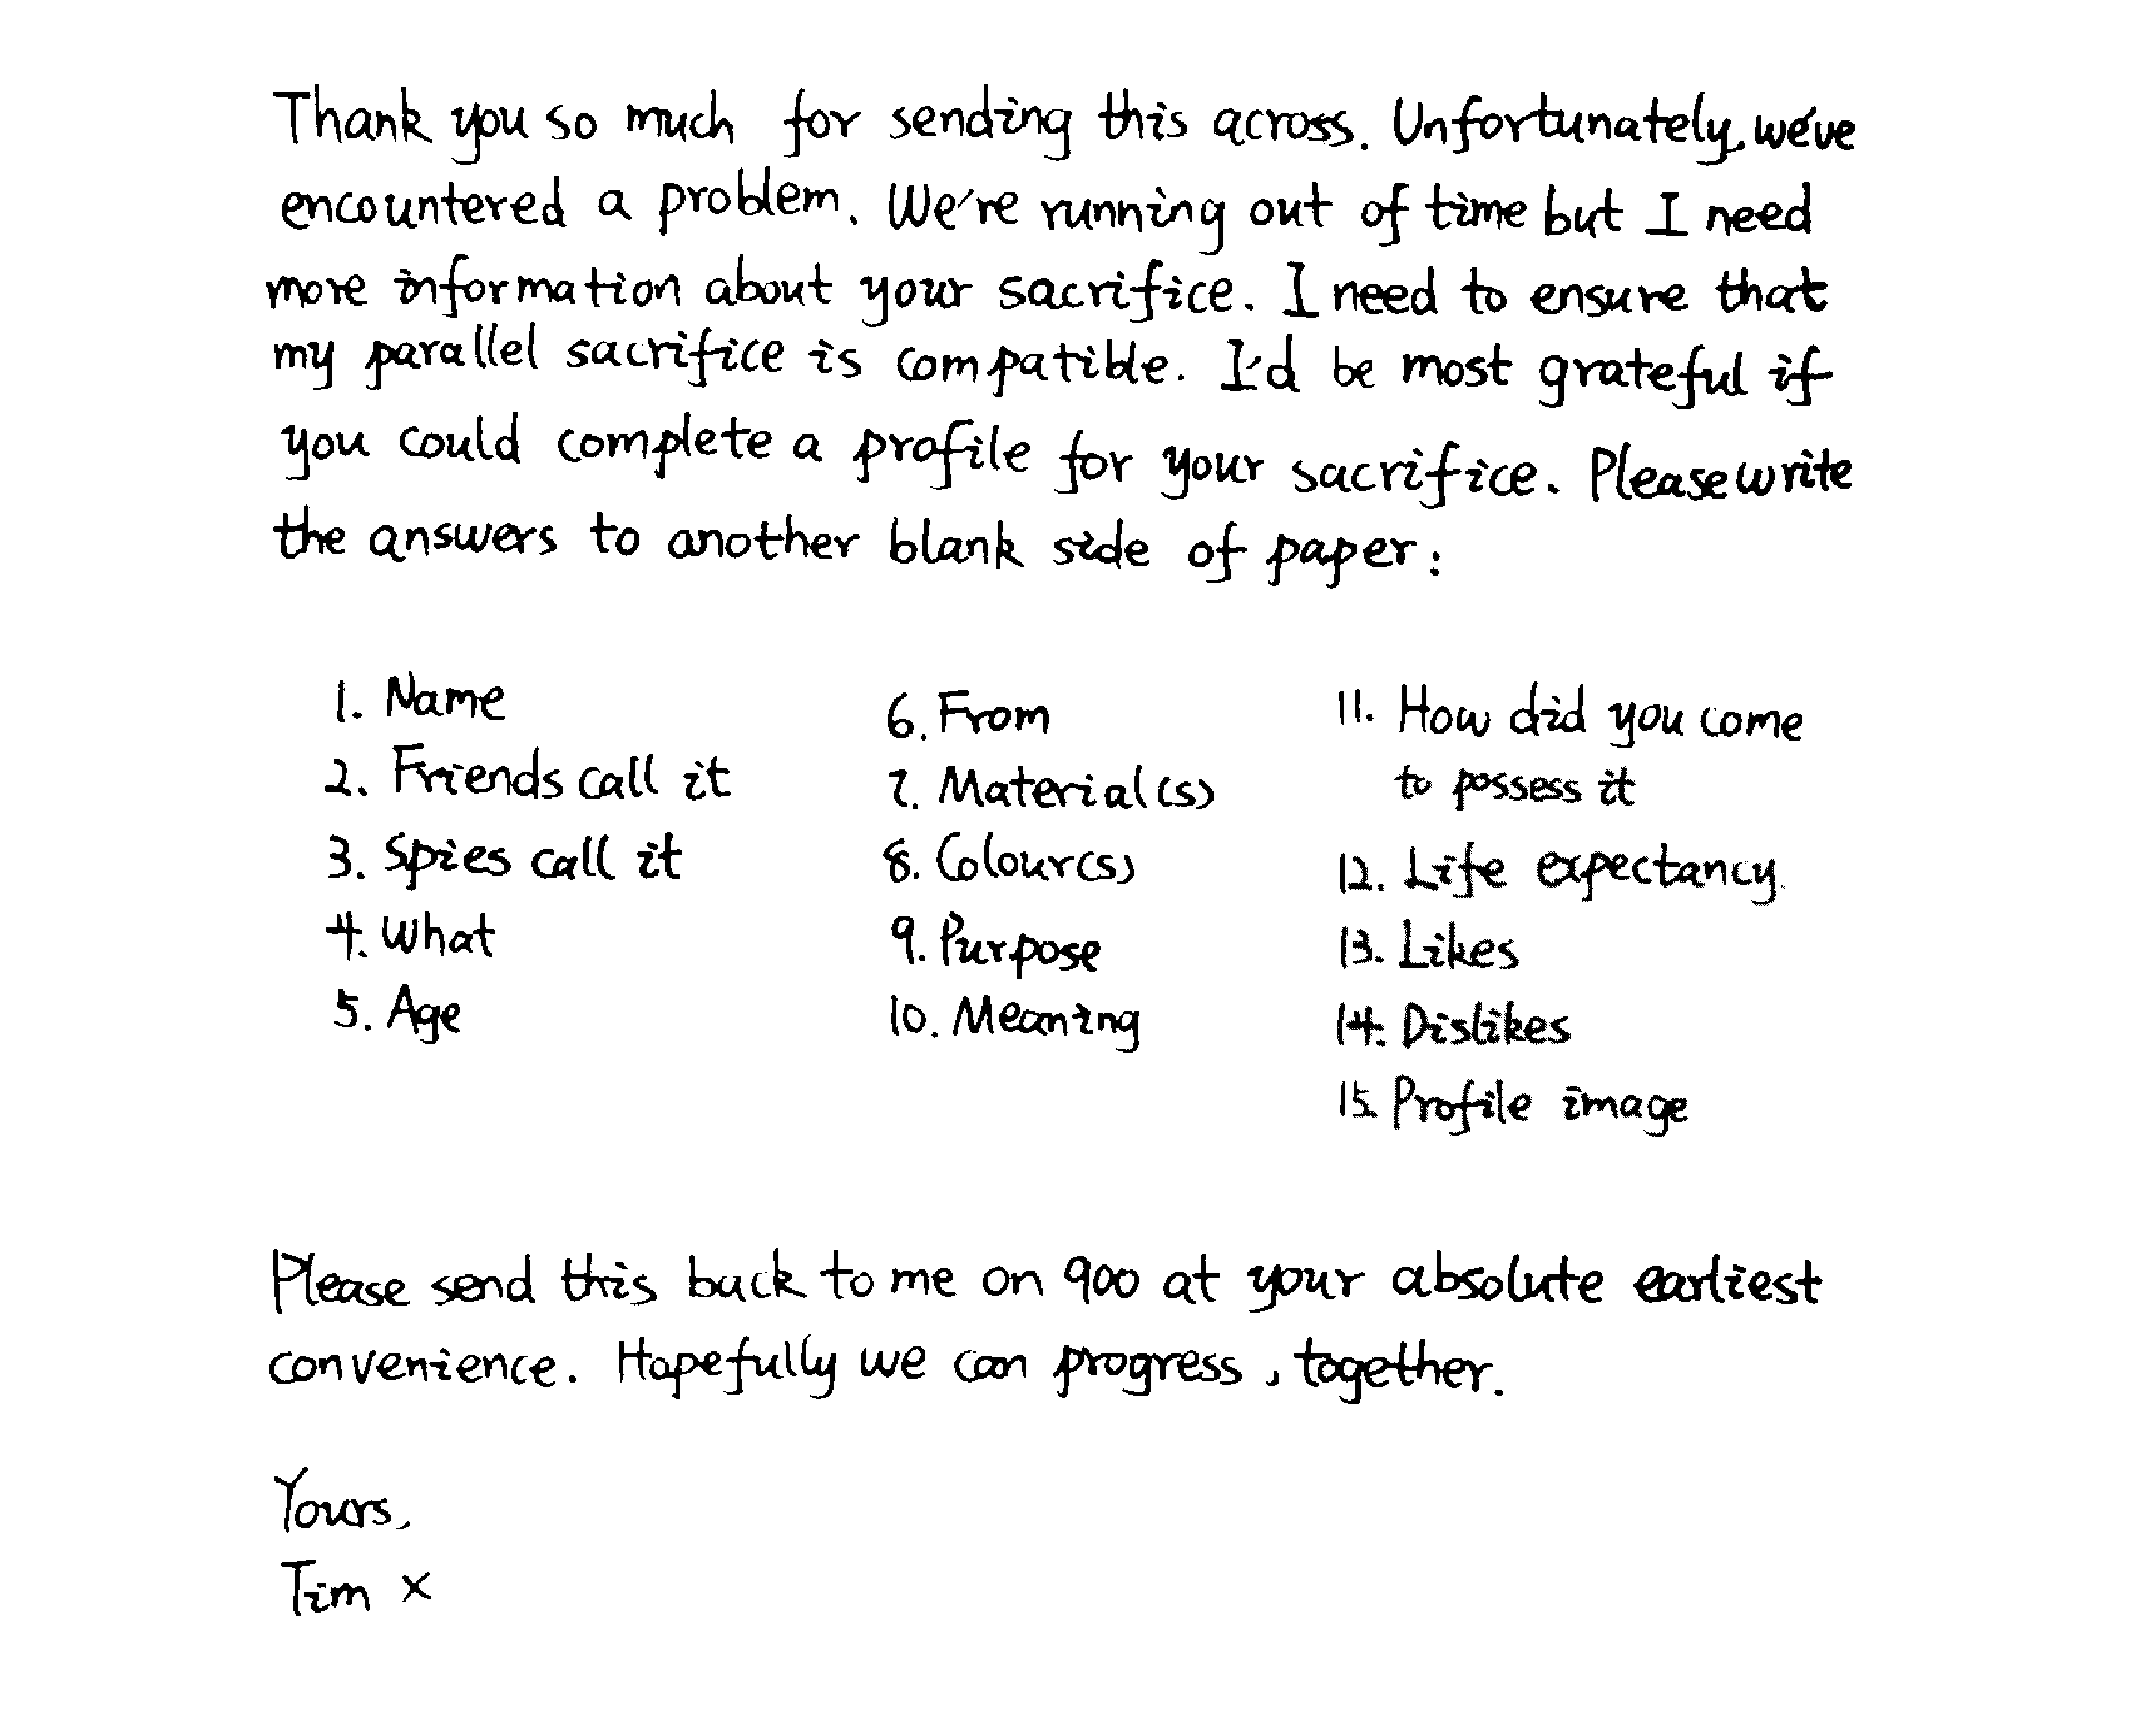 Thank you so much for sending this across. Unfortunately, we've
encountered a problem. We're running out of time but I need
more information about your sacrifice. I need to ensure that
my parallel sacrifice is compatible. I'd be most grateful if
you could complete a profile for your sacrifice. Please write
the answers to another blank side of paper:
1. Name
2. Friends call it
3. Spies call it
4. What
5. Age
6. From
7. Material(s)
8. Colour(s)
9. Purpose
10. Meaning
11. How did you come
to possess it
12. Life expectancy.
13. Likes
14. Dislikes
15. Profile image
Please send this back to me on 900 at your absolute earliest
convenience. Hopefully we can progress, together.
Yours,
Tim x